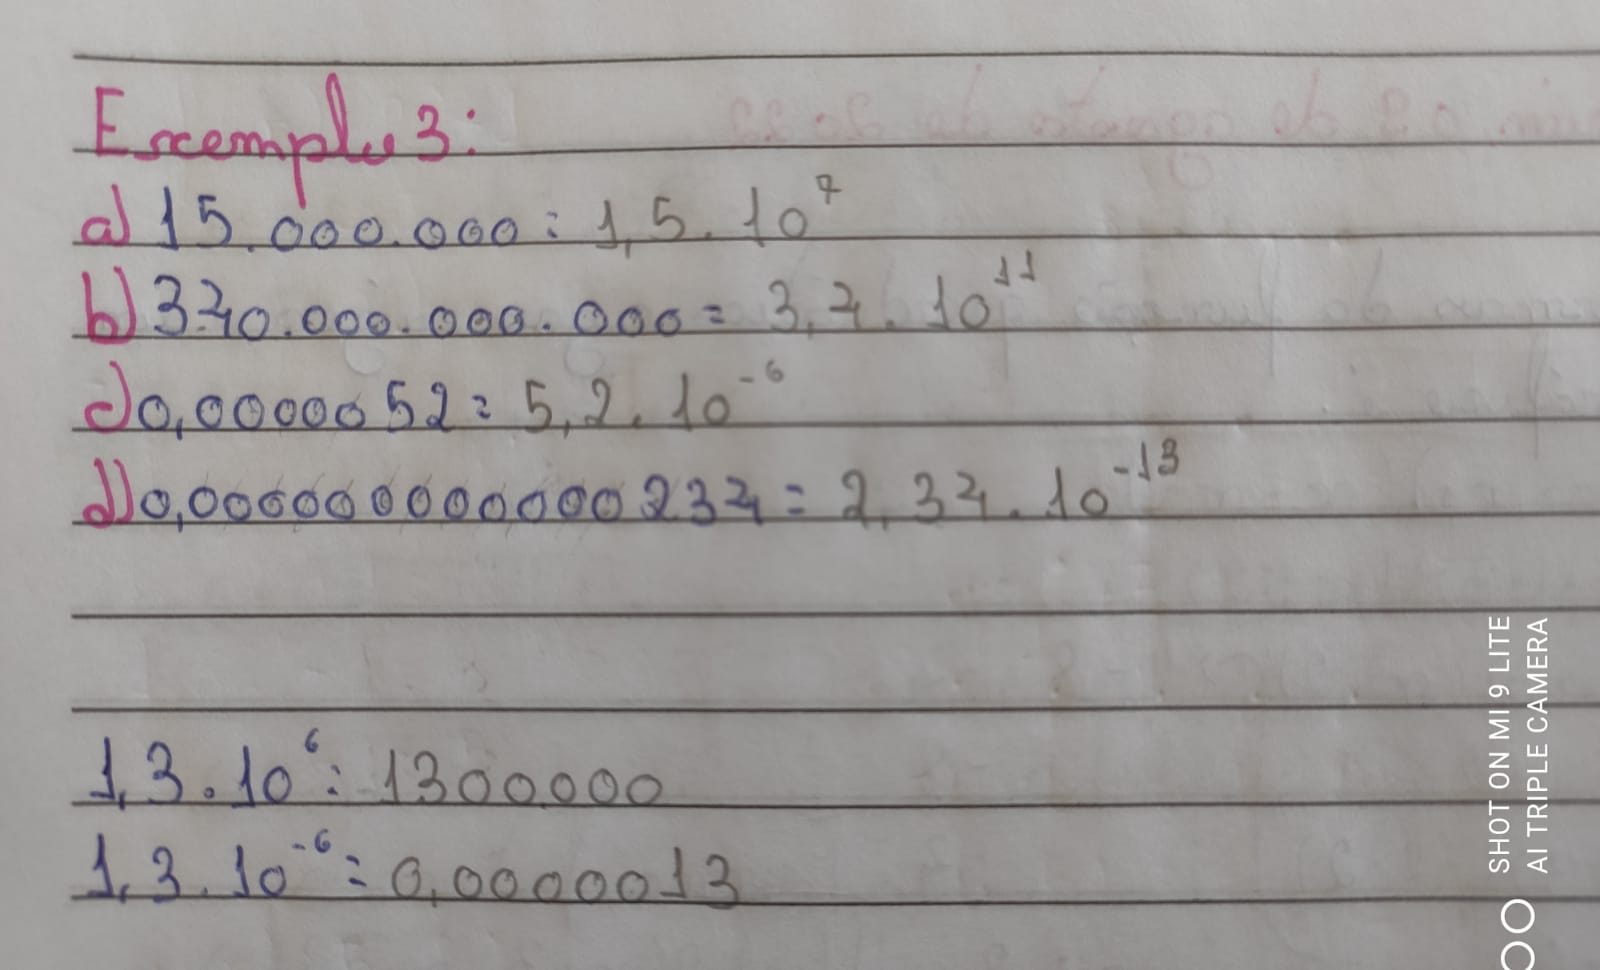 Exemplo 3:
a) 15.000.000 = 1,5 . 10⁷
b) 340.000.000.000 = 3,4 . 10¹¹
c) 0,0000052 = 5,2 . 10⁻⁶
d) 0,000000000000234 = 2,34 . 10⁻¹³
1,3 . 10⁶ = 1300000
1,3 . 10⁻⁶ = 0,0000013
SHOT ON MI 9 LITE
AI TRIPLE CAMERA